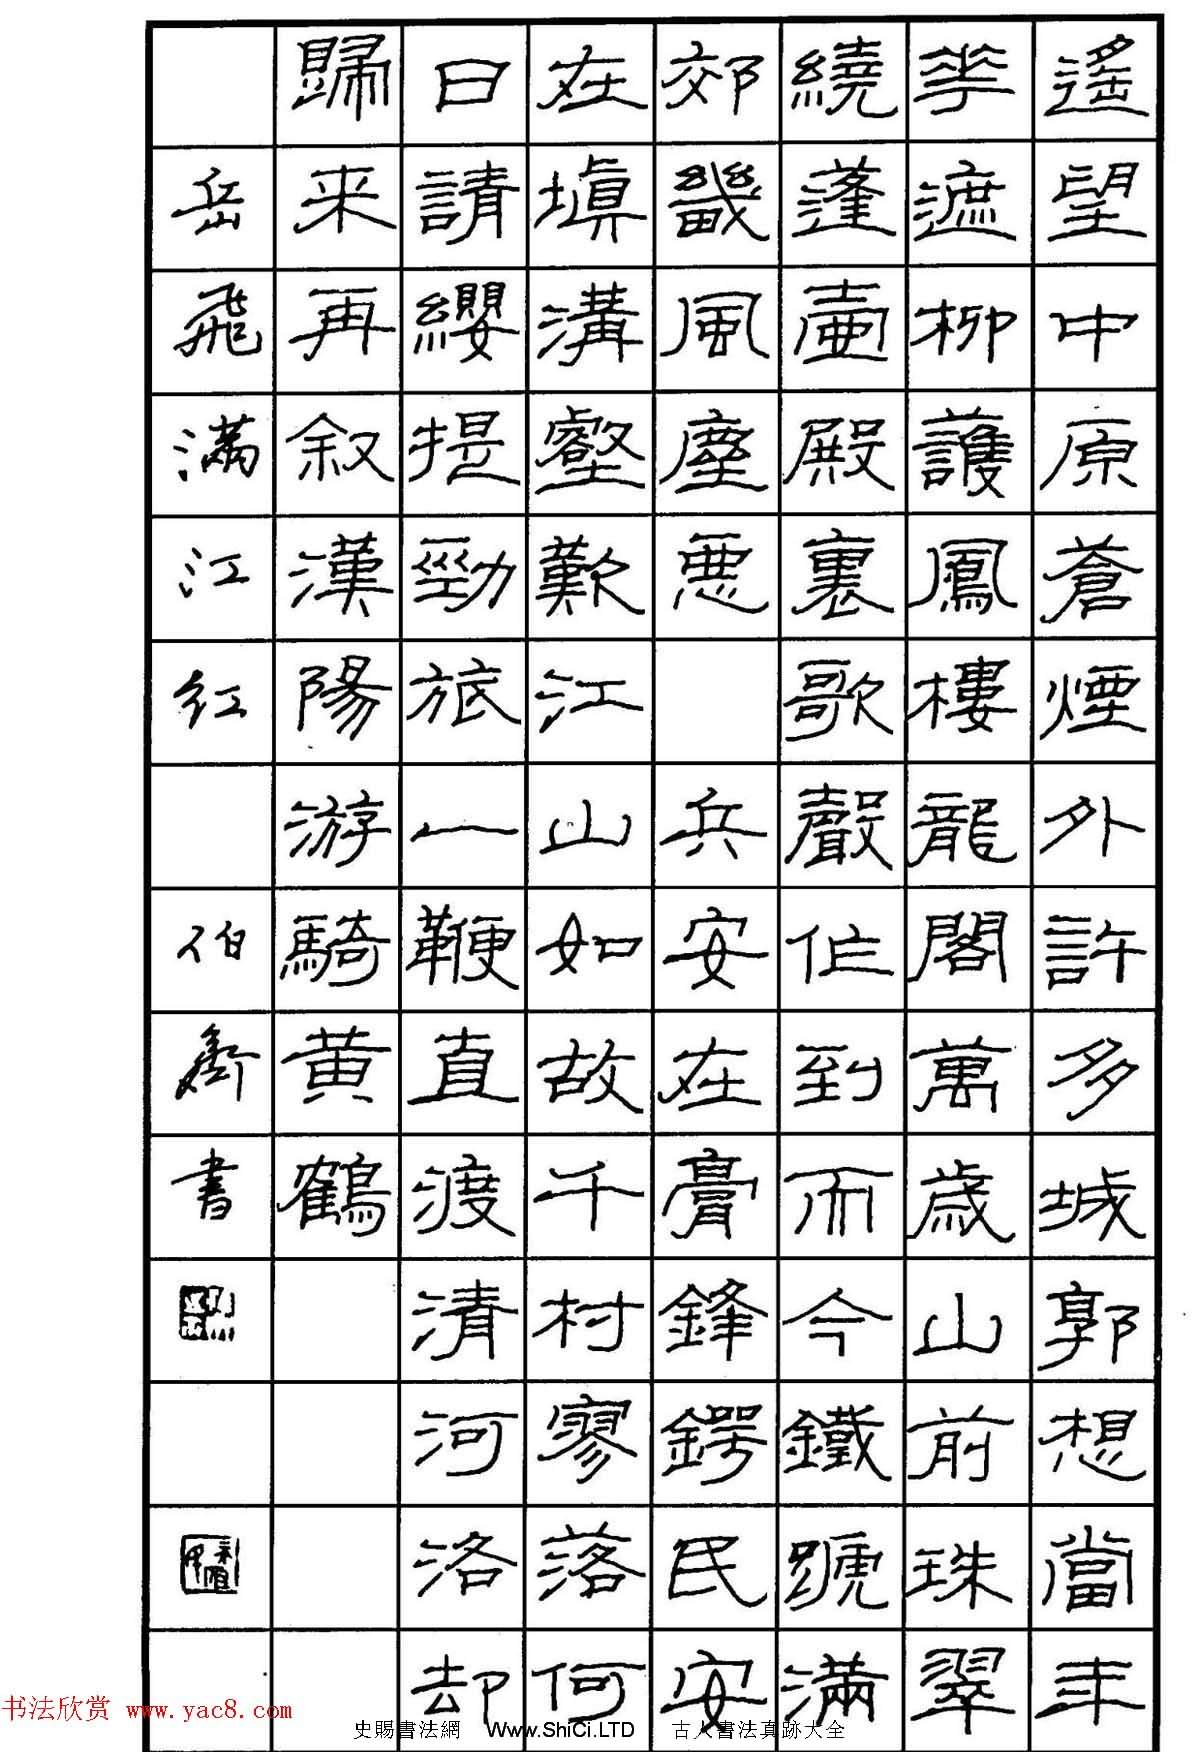 遙望中原蒼煙外許多城郭想當年
花遮柳護鳳樓龍閣萬歲山前珠翠
繞蓬壷殿裏歌聲作到而今鐵蹏滿
郊畿風塵悪 兵安在膏鋒鍔民安
在塡溝壑歎江山如故千村寥落何
日請纓提勁旅一鞭直渡清河洛却
歸来再叙漢陽游騎黄鶴
岳飛滿江红 伯齋書
书法欣赏 www.yac8.com
史賜書法網 Www.ShiCi.LTD 古人書法真跡大全